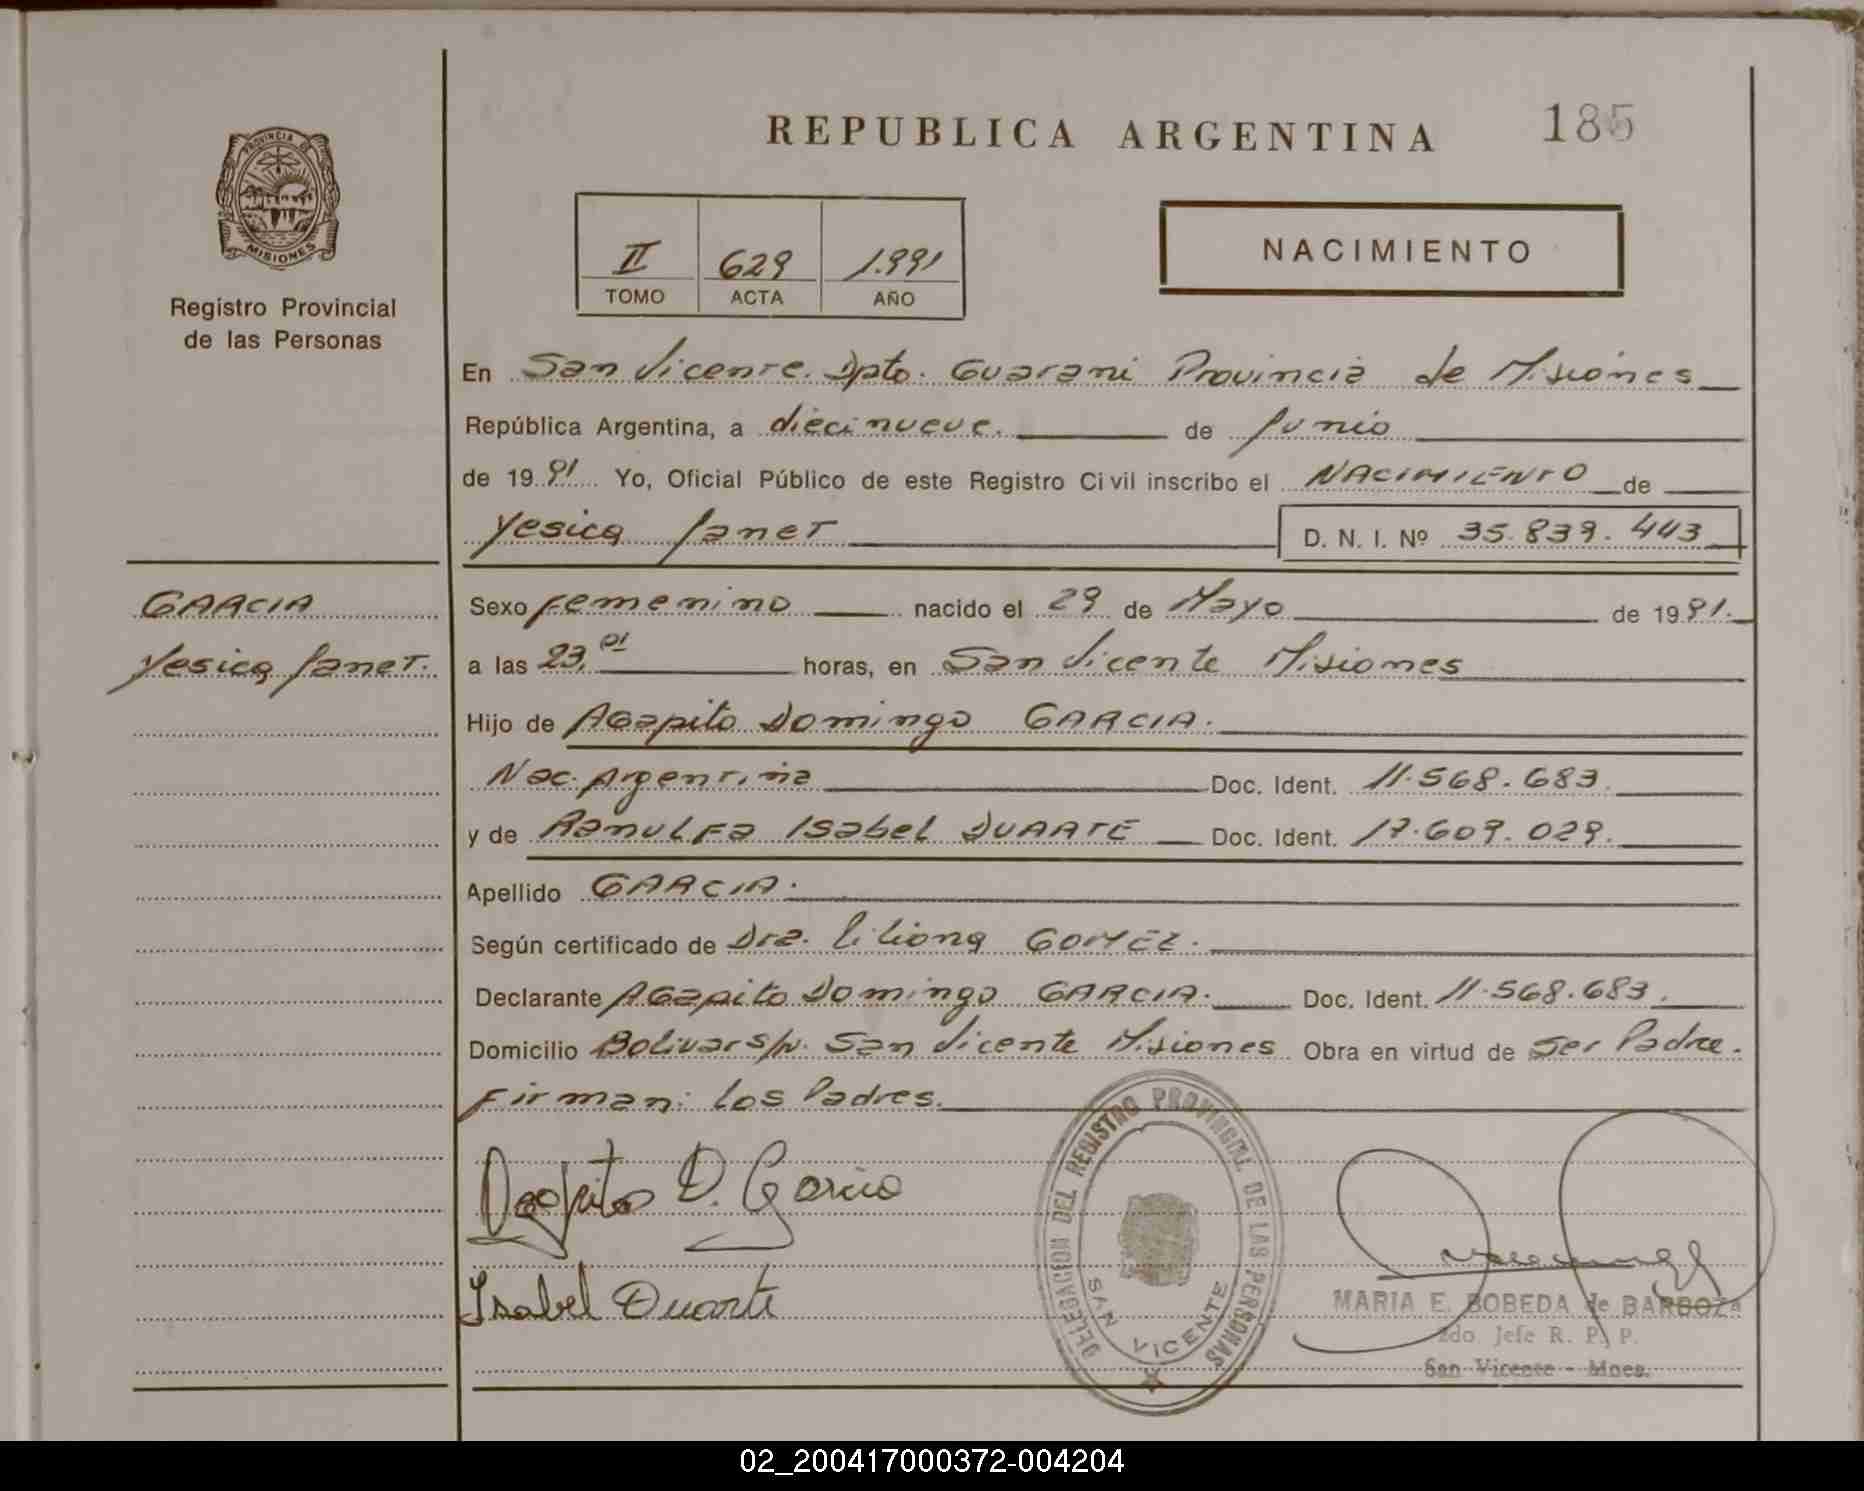 REPUBLICA ARGENTINA
185
PROVINCIA DE
MISIONES
Registro Provincial
de las Personas
II 629 1.991
TOMO ACTA AÑO
NACIMIENTO
En San Vicente. Dpto. Guarani Provincia de Misiones
República Argentina, a diecinueve. de Junio
de 19 91 Yo, Oficial Público de este Registro Civil inscribo el NACIMIENTO de
Yesica Janet D. N. I. Nº 35.839.443
GARCIA
Yesica Janet.
Sexo femenino nacido el 29 de Mayo de 19 91.
a las 23,01 horas, en San Vicente Misiones
Hijo de Agapito Domingo GARCIA.
Nac. Argentina Doc. Ident. 11.568.683.
y de Ranulfa Isabel DUARTE Doc. Ident. 17.609.029.
Apellido GARCIA.
Según certificado de Dra. Liliana GOMEZ.
Declarante Agapito Domingo GARCIA. Doc. Ident. 11.568.683.
Domicilio Bolivar s/n. San Vicente Misiones Obra en virtud de Ser Padre.
Firman: Los Padres.
Agapito D. Garcia
Isabel Duarte
DELEGACION DEL REGISTRO PROVINCIAL DE LAS PERSONAS
SAN VICENTE
MARIA E. BOBEDA de BARBOZA
2do. Jefe R. P. P.
San Vicente - Mnes.
02_200417000372-004204